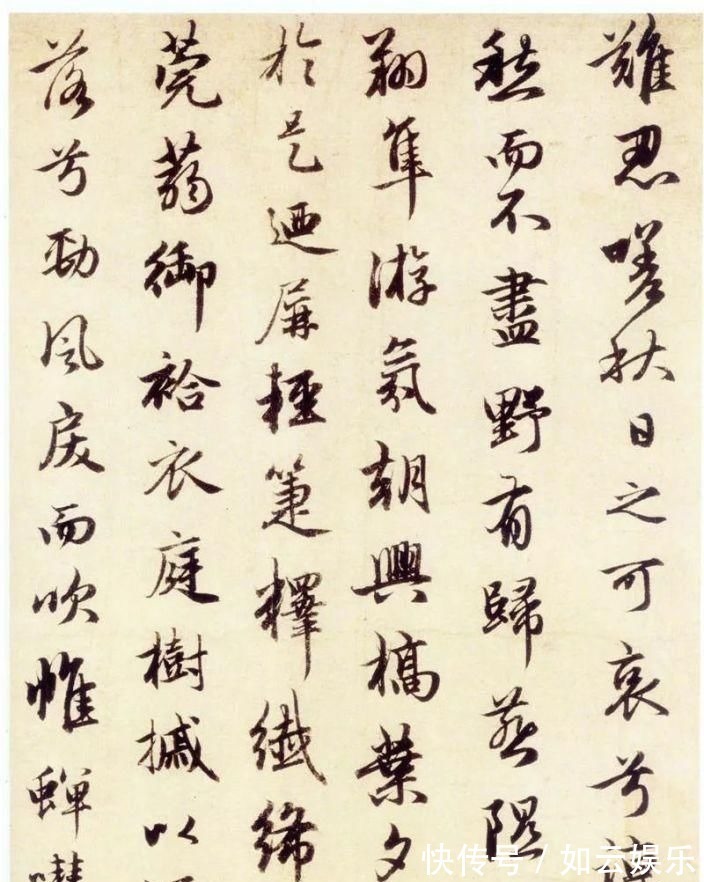 難忍嗟秋日之可哀兮
愁而不盡野有歸燕隰
翔隼游氛朝興槁葉夕
於是迺屏輕箑釋纖絺
莞蒻御袷衣庭樹摵以
落兮勁風戾而吹帷蟬
快传号 / 如云娱乐